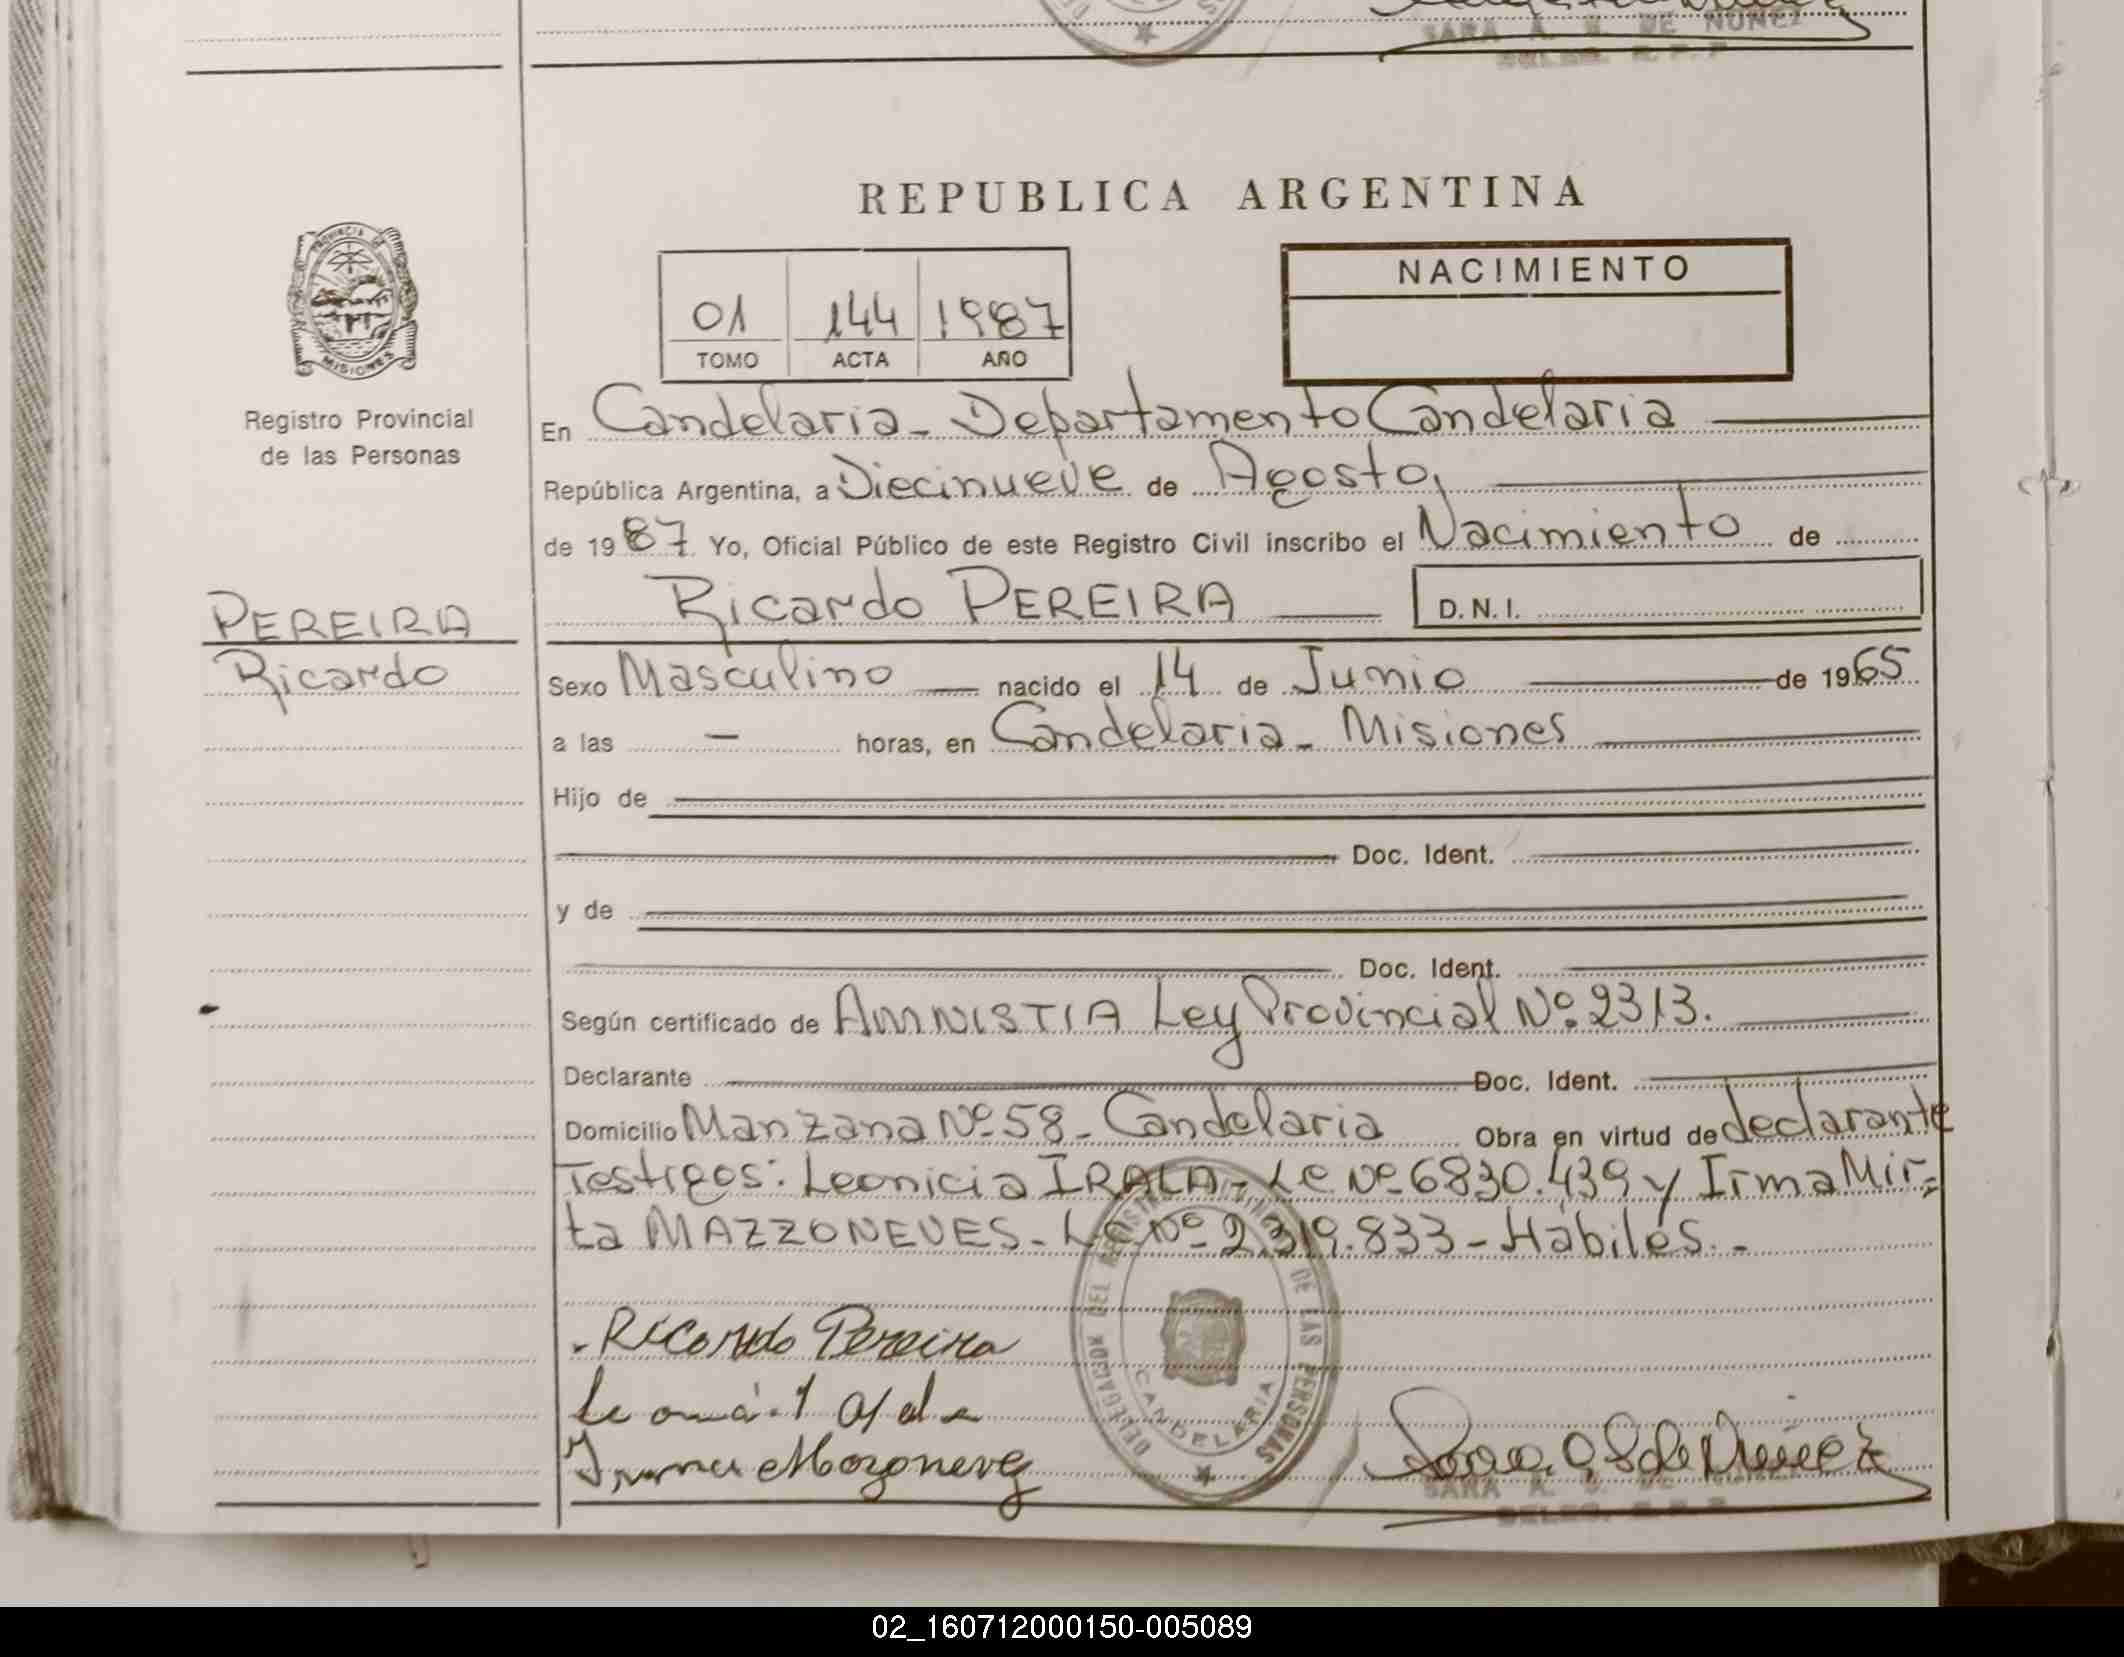 SARA A. S. DE NUÑEZ
DELEG. R. P. P
REPUBLICA ARGENTINA
PROVINCIA DE MISIONES
Registro Provincial
de las Personas
01 144 1987
TOMO ACTA AÑO
NACIMIENTO
En Candelaria - Departamento Candelaria
República Argentina, a Diecinueve de Agosto,
de 1987. Yo, Oficial Público de este Registro Civil inscribo el Nacimiento de
PEREIRA
Ricardo
Ricardo PEREIRA D.N.I.
Sexo Masculino nacido el 14 de Junio de 1965
a las - horas, en Candelaria - Misiones
Hijo de
Doc. Ident.
y de
Doc. Ident.
Según certificado de AMNISTIA Ley Provincial Nº 2313.
Declarante Doc. Ident.
Domicilio Manzana Nº 58 - Candelaria Obra en virtud de declarante
Testigos: Leonicia IRALA - LC Nº 6830.439 y Irma Mir=
ta MAZZONEVES - LC Nº 2.319.833 - Hábiles. -
Ricardo Pereira
DELEGACION DEL REGISTRO PROV. DE LAS PERSONAS
CANDELARIA
SARA A. S. DE NUÑEZ
DELEG. R. P. P
02_160712000150-005089